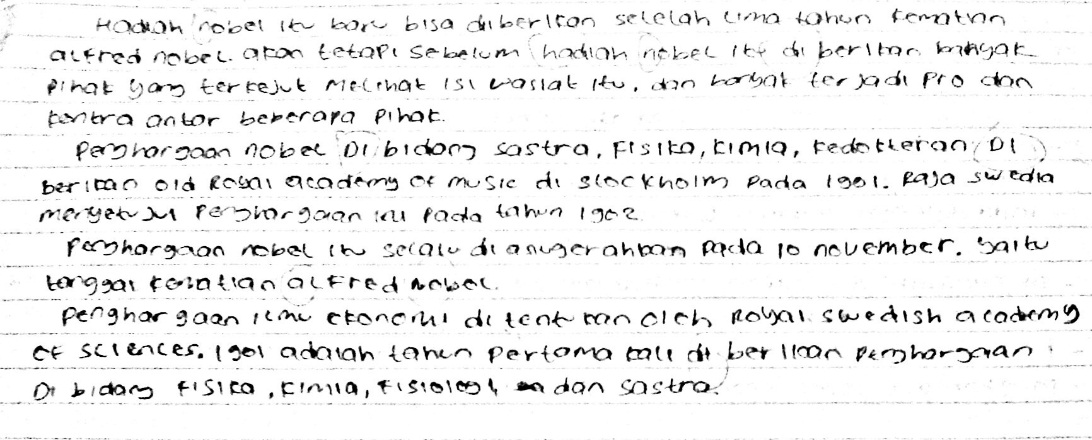 Hadiah nobel itu baru bisa diberikan setelah lima tahun kematian
alfred nobel. akan tetapi sebelum hadiah nobel itu di berikan banyak
pihak yang terkejut melihat isi wasiat itu, dan banyak terjadi pro dan
kontra antar beberapa pihak.
Penghargaan nobel Di bidang sastra, Fisika, kimia, kedokteran, Di
berikan old Royal academy of music di stockholm pada 1901. Raja swedia
menyetujui penghargaan ini pada tahun 1902
penghargaan nobel itu selalu di anugerahkan pada 10 november. yaitu
tanggal kematian alfred nobel.
penghargaan ilmu ekonomi di tentukan oleh Royal swedish academy
of sciences. 1901 adalah tahun pertama kali di berikan penghargaan
Di bidang fisika, kimia, fisiologi, dan sastra.